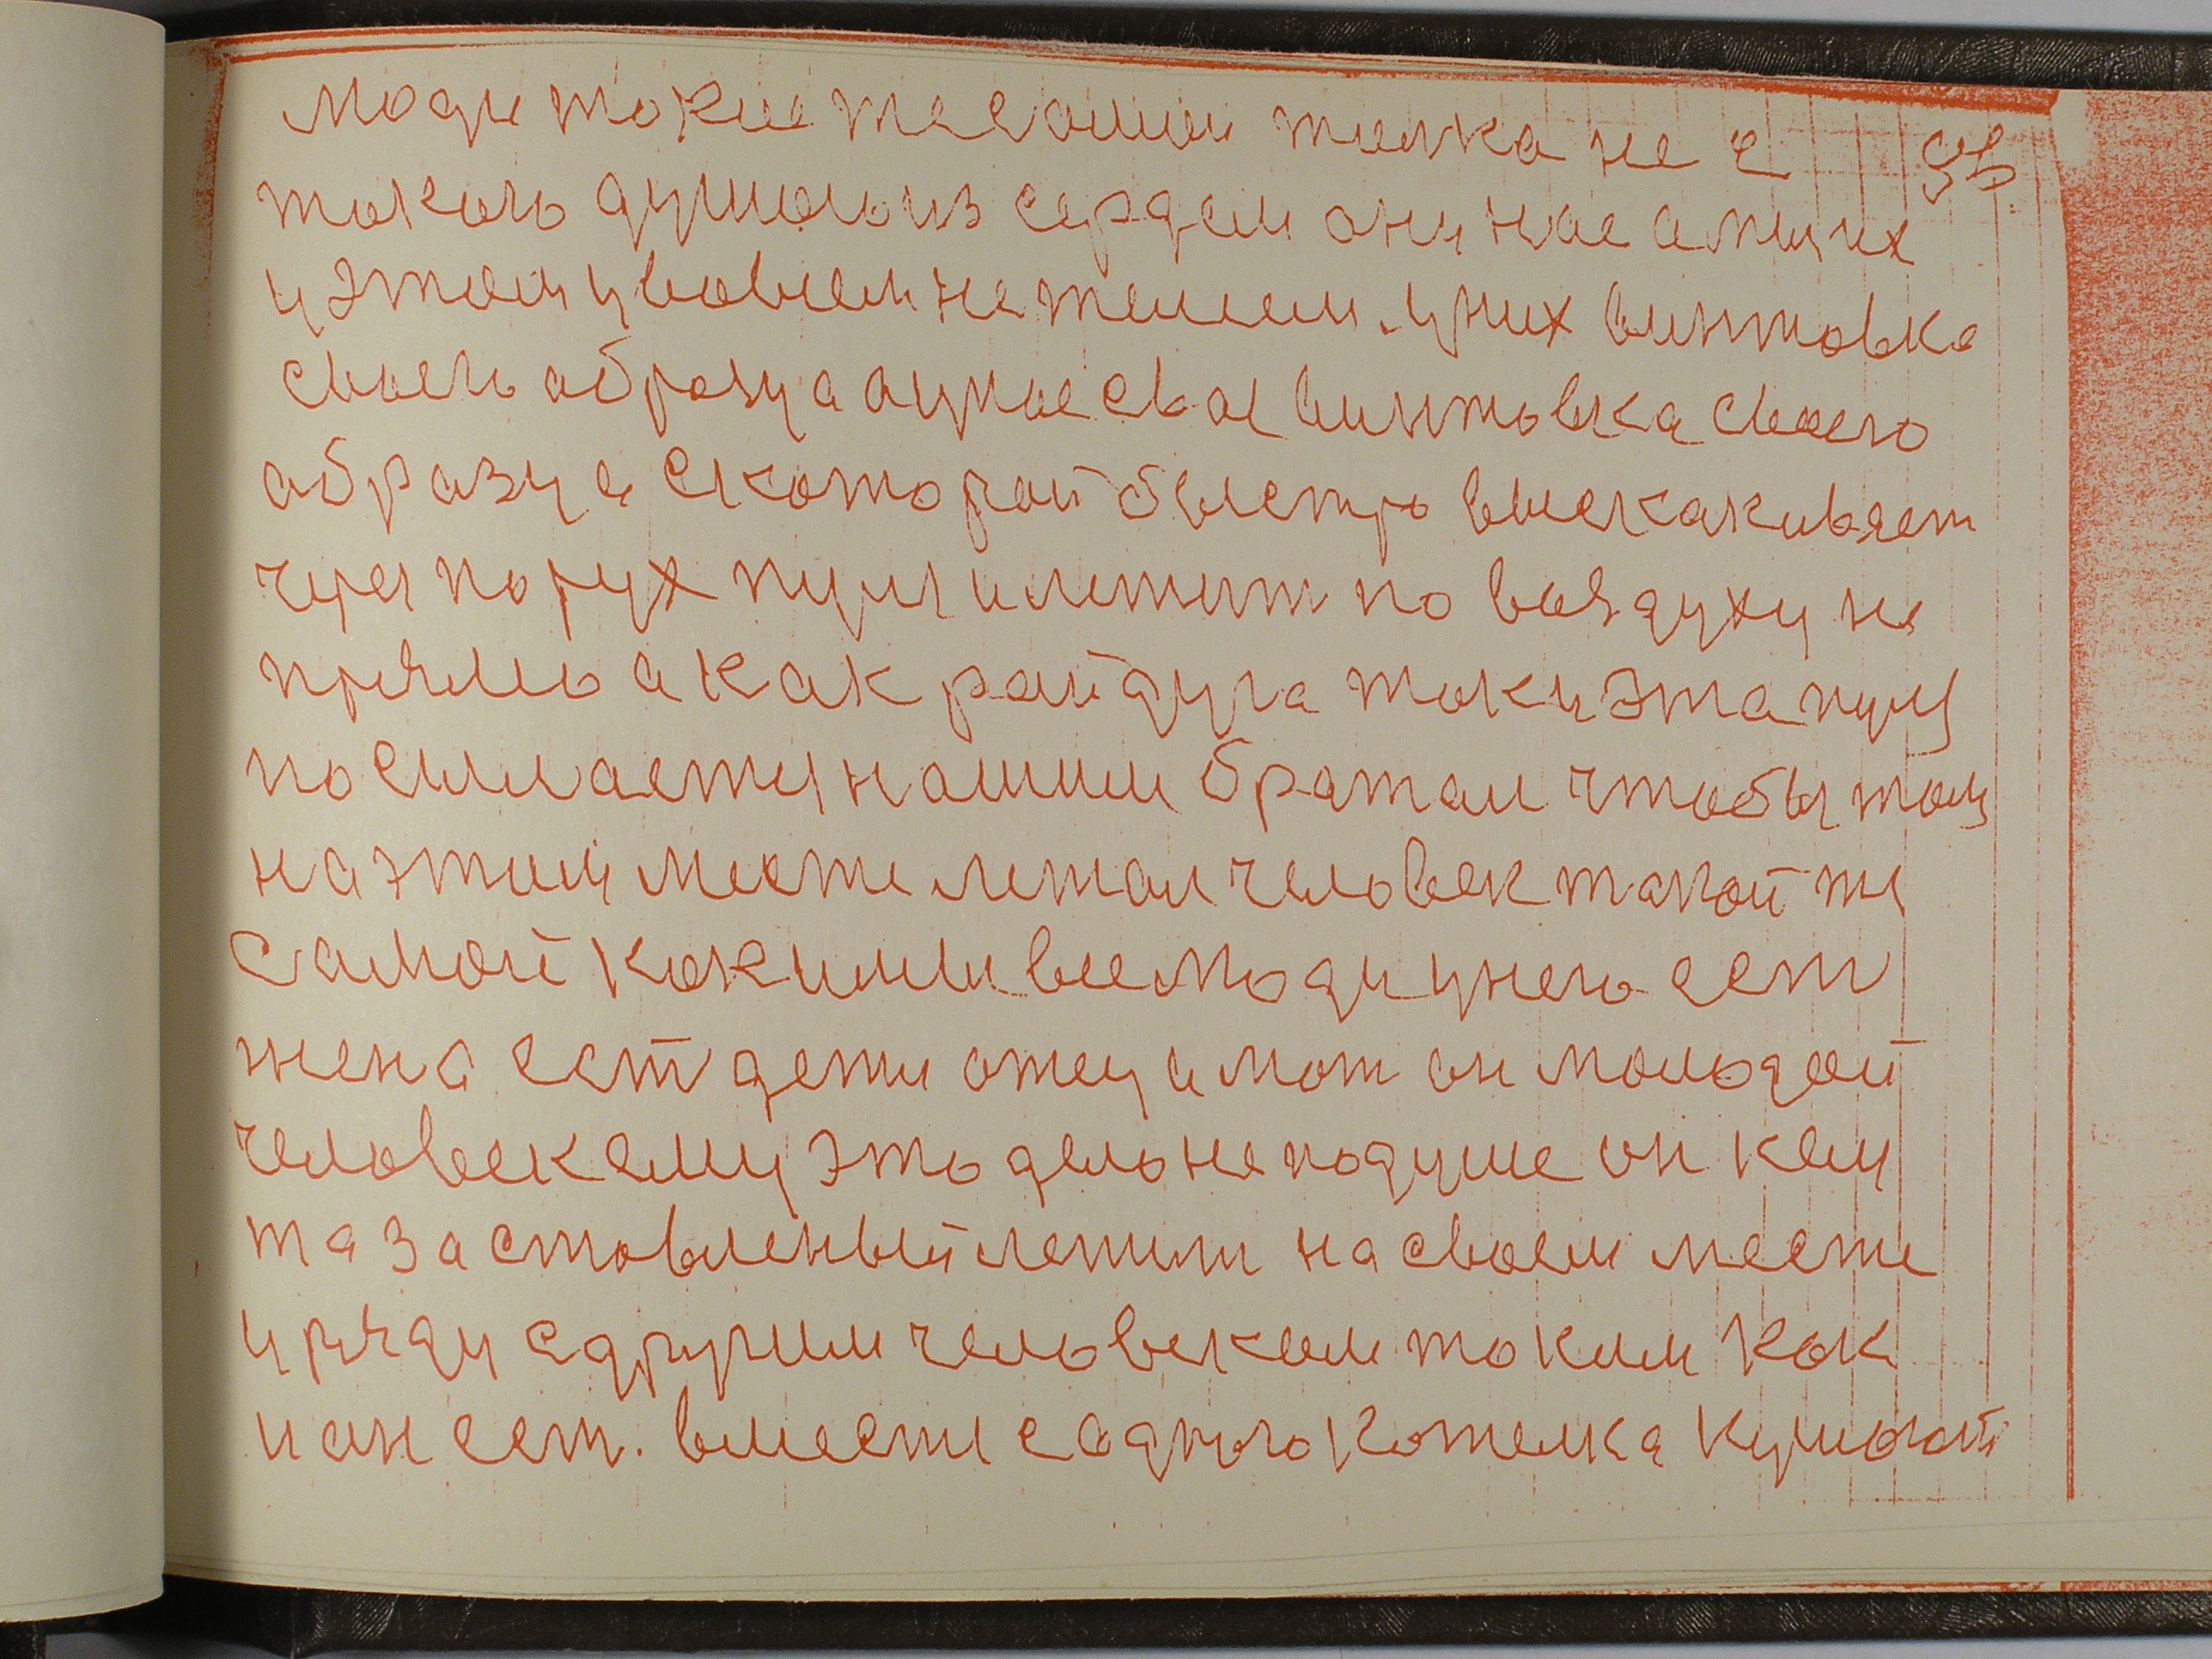 люди такие же самии толка не с
такого душою из сердем они нас а мы их
у этом у вовсем не жилеем. у них винтовка
своего образца а у нас свае винтовка своего
образца с которай быстро выскакивает
чрез порух пуля и летит по воздуху не
прямо а как райдуга таки эта пуля
посылается нашим братам чтобы там
на этим месте лежал человек такой же
самой как и мы все люди у него ест
жена ест дети отец и мат он молодой
человек ему это дело не подуше он кем
та заставленый лежит на своем месте
у ряду с другим человеком таким как
и он ест. вместе с одного котелка кушают